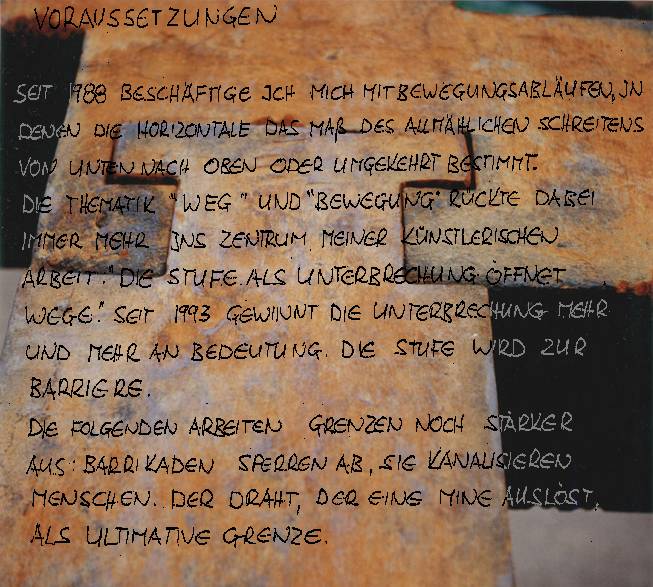 VORAUSSETZUNGEN
SEIT 1988 BESCHÄFTIGE ICH MICH MIT BEWEGUNGSABLÄUFEN, IN
DENEN DIE HORIZONTALE DAS MAß DES ALLMÄHLICHEN SCHREITENS
VON UNTEN NACH OBEN ODER UMGEKEHRT BESTIMMT.
DIE THEMATIK "WEG" UND "BEWEGUNG" RÜCKTE DABEI
IMMER MEHR INS ZENTRUM MEINER KÜNSTLERISCHEN
ARBEIT. "DIE STUFE ALS UNTERBRECHUNG ÖFFNET
WEGE." SEIT 1993 GEWINNT DIE UNTERBRECHUNG MEHR
UND MEHR AN BEDEUTUNG. DIE STUFE WIRD ZUR
BARRIERE.
DIE FOLGENDEN ARBEITEN GRENZEN NOCH STÄRKER
AUS: BARRIKADEN SPERREN AB, SIE KANALISIEREN
MENSCHEN. DER DRAHT, DER EINE MINE AUSLÖST,
ALS ULTIMATIVE GRENZE.